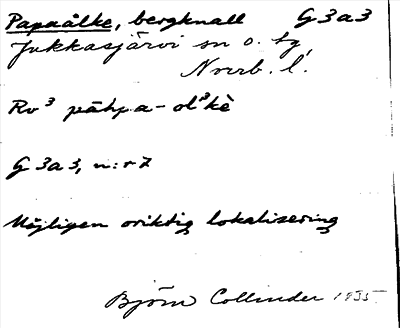 Papaålke, bergknall G 3 a 3
Jukkasjärvi sn o. tg,
Norrb. l.
Ro³ pāhpa-olˀkè
G 3 a 3, n:r 7
Möjligen oriktig lokalisering
Björn Collinder 1935